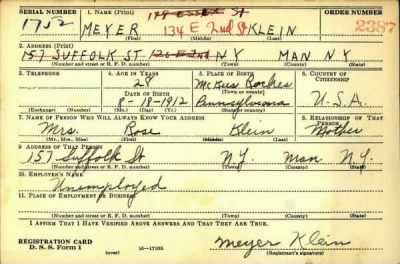 SERIAL NUMBER 1. NAME (Print) 179 ESSEX ST ORDER NUMBER
1752 MEYER 134 E 2nd St KLEIN 2387
(First) (Middle) (Last)
2. ADDRESS (Print)
157 SUFFOLK ST N Y MAN NY
(Number and street or R. F. D. number) (Town) (County) (State)
3. TELEPHONE 4. AGE IN YEARS 5. PLACE OF BIRTH 6. COUNTRY OF CITIZENSHIP
28 McKees Rockes
DATE OF BIRTH (Town or county)
8-18-1912 Pennsylvania U.S.A.
(Exchange) (Number) (Mo.) (Day) (Yr.) (State or country)
7. NAME OF PERSON WHO WILL ALWAYS KNOW YOUR ADDRESS 8. RELATIONSHIP OF THAT PERSON
Mrs. Rose Klein Mother
(Mr., Mrs., Miss) (First) (Middle) (Last)
9. ADDRESS OF THAT PERSON
157 Suffolk St N.Y. Man. N.Y.
(Number and street or R. F. D. number) (Town) (County) (State)
10. EMPLOYER'S NAME
Unemployed
11. PLACE OF EMPLOYMENT OR BUSINESS
(Number and street or R. F. D. number) (Town) (County) (State)
I AFFIRM THAT I HAVE VERIFIED ABOVE ANSWERS AND THAT THEY ARE TRUE.
REGISTRATION CARD
D. S. S. Form 1 16-17105 Meyer Klein
(over) (Registrant's signature)